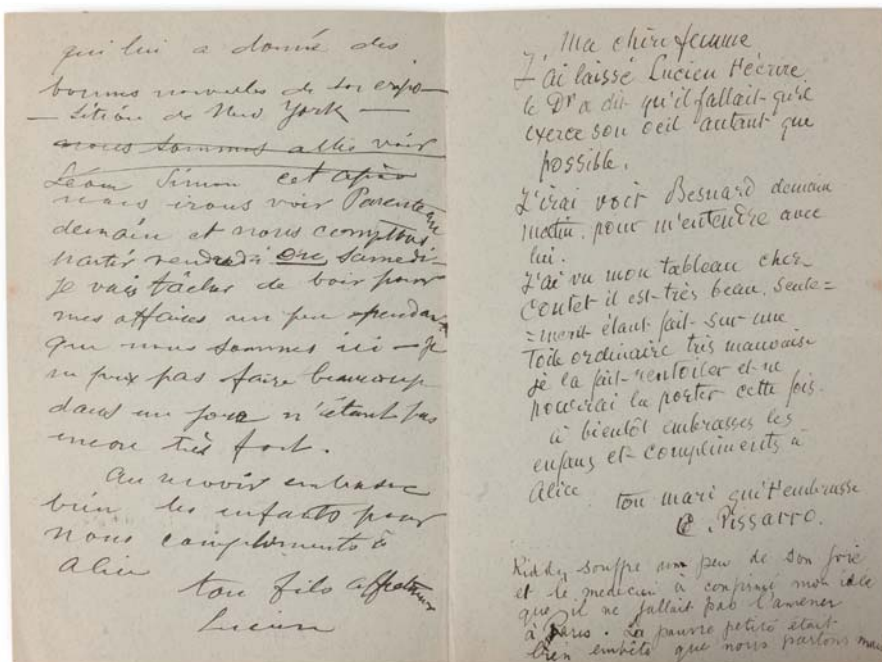 qui lui a donné des
bonnes nouvelles de son expo-
-sition de New York -
nous sommes allés voir
Léon Simon cet après
nous irons voir
demain et nous comptons
partir vendredi ou samedi-
je vais tâcher de voir pour
mes affaires un peu pendant
que nous sommes ici - je
ne peux pas faire beaucoup
dans un jour n'étant pas
encore très fort.
Au revoir embrasse
bien les enfants pour
nous compliments à
Alice
ton fils affectueux
Lucien
Ma chère femme
J'ai laissé Lucien t'écrire
le Dr a dit qu'il fallait qu'il
exerce son oeil autant que
possible.
J'irai voir Besnard demain
matin. pour m'entendre avec
lui.
J'ai vu mon tableau chez
Contet il est très beau. seule=
=ment étant fait sur une
Toile ordinaire très mauvaise
je la fait rentoiler et ne
pourrai la porter cette fois.
à bientôt embrasses les
enfans et compliments à
Alice
ton mari qui t'embrasse
C. Pissarro.
Kiddy souffre un peu de son foie
et le medecin à confirmé mon idée
que il ne fallait pas l'amener
à Paris. La pauvre petite était
bien embêté que nous partons mais